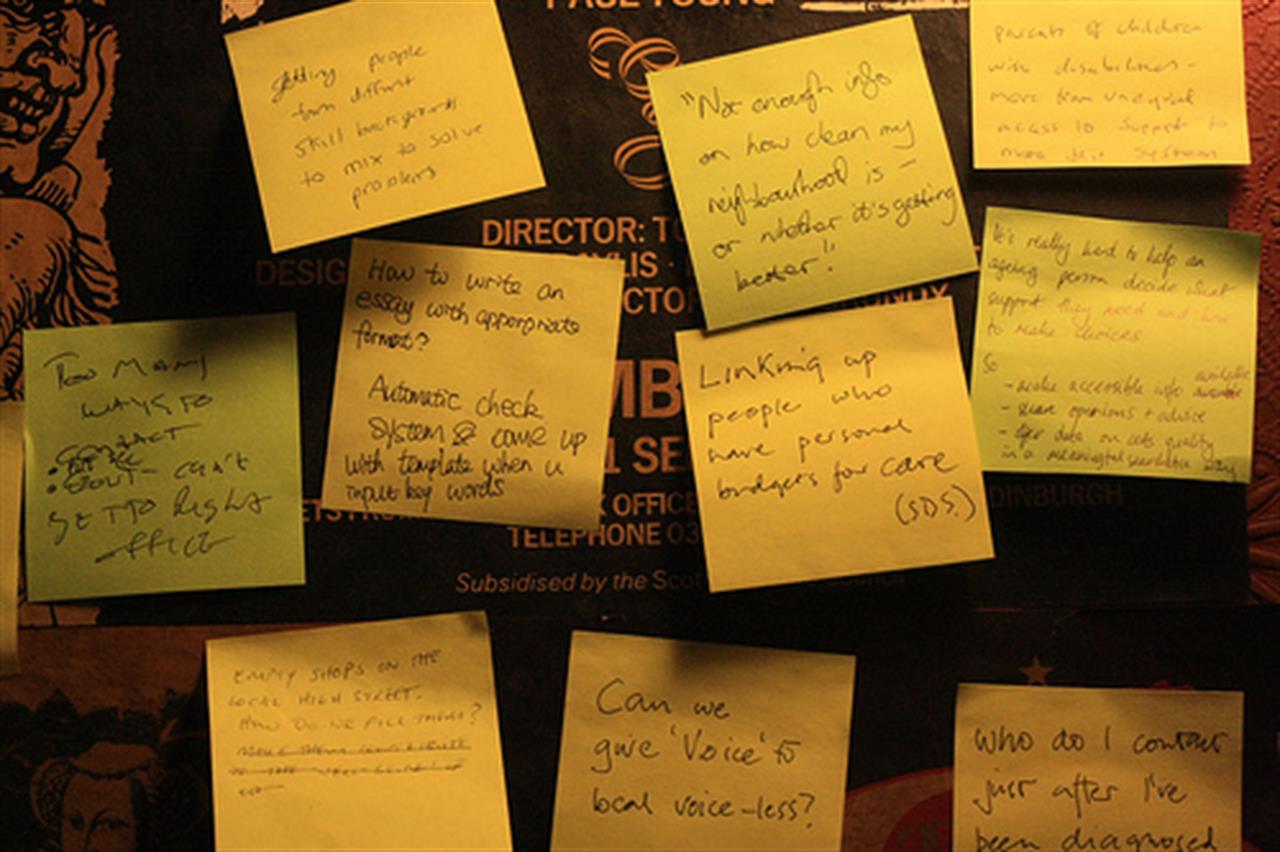 PAUL YOUNG
getting people
from diffrent
skill backgrounds
to mix to solve
problems
"Not enough info
on how clean my
neighbourhood is -
or whether it's getting
better!"
parents of children
with disabilities -
more team unequal
access to support to
DIRECTOR: TO
DESIG
CTO
How to write an
essay with appropriate
format?
Automatic check
system & come up
with template when u
input key words
It's really hard to help an
ageing person decide what
support they need and how
to make choices
So
- make accessible info available
- share opinions + advice
- offer data on cost, quality
in a meaningful searchable way
Too many
ways to
contact
- can't
get to right
office
Linking up
people who
have personal
budgets for care
(SDS.)
MB
1 SE
OFFICE
DINBURGH
TELEPHONE 03
Subsidised by the Sco
EMPTY SHOPS ON THE
LOCAL HIGH STREET.
HOW DO WE FILL THEM?
Can we
give 'Voice' to
local voice-less?
Who do I contact
just after I've
been diagnosed